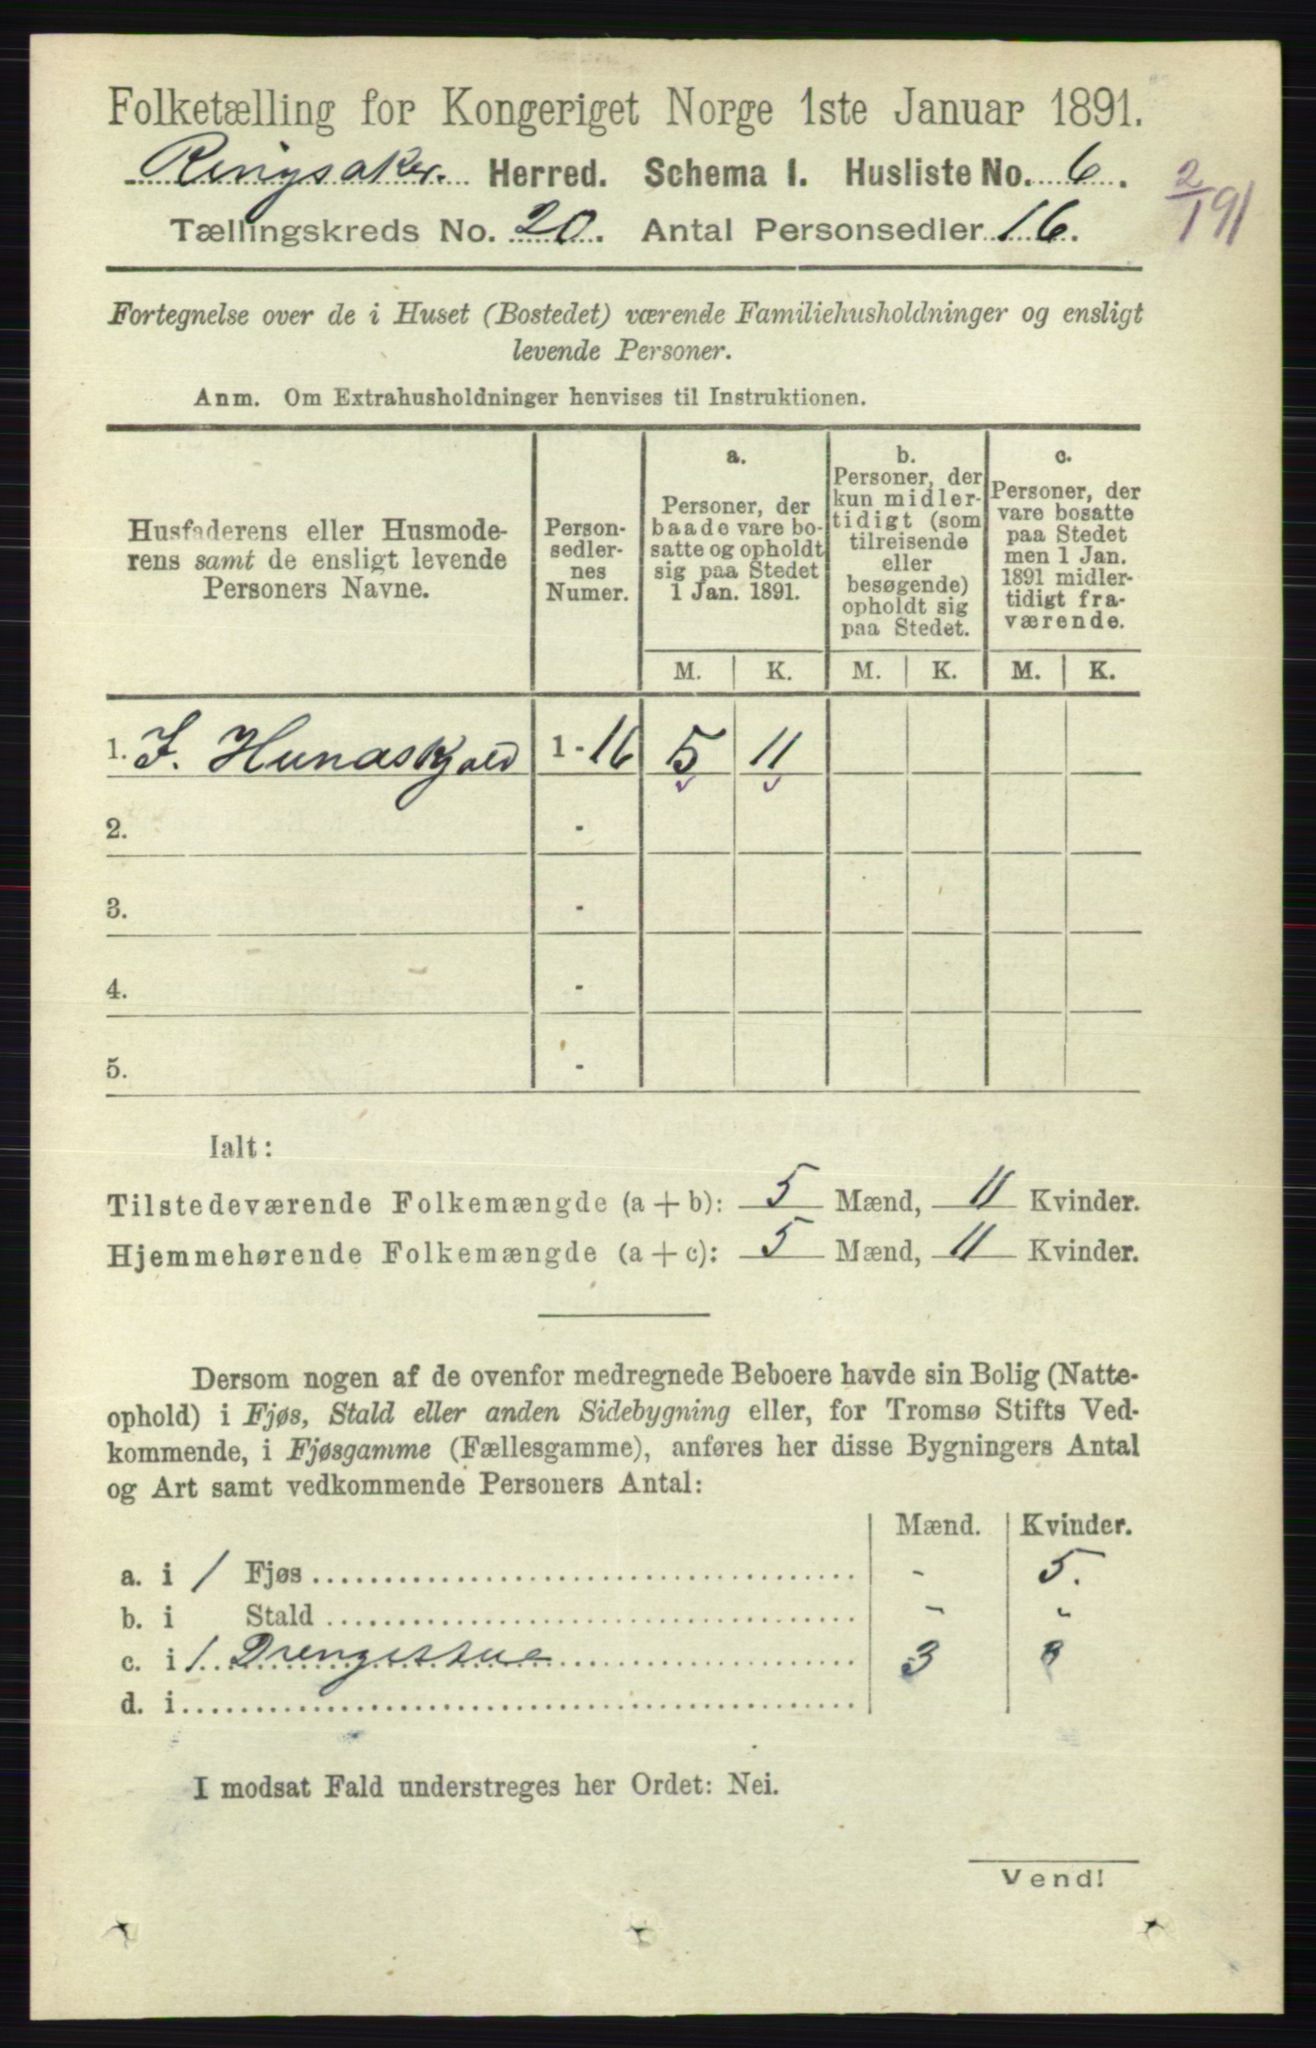 Folketælling for Kongeriget Norge 1ste Januar 1891.
Ringsaker. Herred. Schema I. Husliste No. 6.
2/1 91
Tællingskreds No. 20. Antal Personsedler 16.
Fortegnelse over de i Huset (Bostedet) værende Familiehusholdninger og ensligt
levende Personer.
Anm. Om Extrahusholdninger henvises til Instruktionen.
Husfaderens eller Husmode-
rens samt de ensligt levende
Personers Navne.
Person-
sedler-
nes
Numer.
a.
Personer, der
baade vare bo-
satte og opholdt
sig paa Stedet
1 Jan. 1891.
b.
Personer, der
kun midler-
tidigt (som
tilreisende
eller
besøgende)
opholdt sig
paa Stedet.
c.
Personer, der
vare bosatte
paa Stedet
men 1 Jan.
1891 midler-
tidigt fra-
værende.
M. K. M. K. M. K.
1. J. Hunaskjold 1 - 16 5 11
2. -
3. -
4. -
5. -
Ialt:
Tilstedeværende Folkemængde (a + b): 5 Mænd, 11 Kvinder.
Hjemmehørende Folkemængde (a + c): 5 Mænd, 11 Kvinder.
Dersom nogen af de ovenfor medregnede Beboere havde sin Bolig (Natte-
ophold) i Fjøs, Stald eller anden Sidebygning eller, for Tromsø Stifts Ved-
kommende, i Fjøsgamme (Fællesgamme), anføres her disse Bygningers Antal
og Art samt vedkommende Personers Antal:
Mænd. Kvinder.
a. i 1 Fjøs - 5.
b. i Stald - "
c. i 1. Drengestue 3
d. i
I modsat Fald understreges her Ordet: Nei.
Vend!